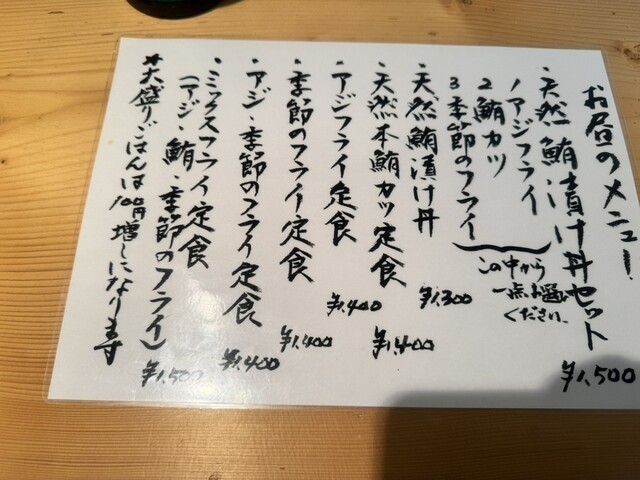 お昼のメニュー
・天然鮪漬け丼セット ¥1,500
1 アジフライ
2 鮪カツ
3 季節のフライ
この中から
一点お選び
ください。
・天然鮪漬け丼 ¥1,300
・天然本鮪カツ定食 ¥1,400
・アジフライ定食 ¥1,400
・季節のフライ定食 ¥1,400
・アジ・季節のフライ定食 ¥1,400
・ミックスフライ定食
(アジ・鮪・季節のフライ) ¥1,500
*大盛りごはんは100円増しになります